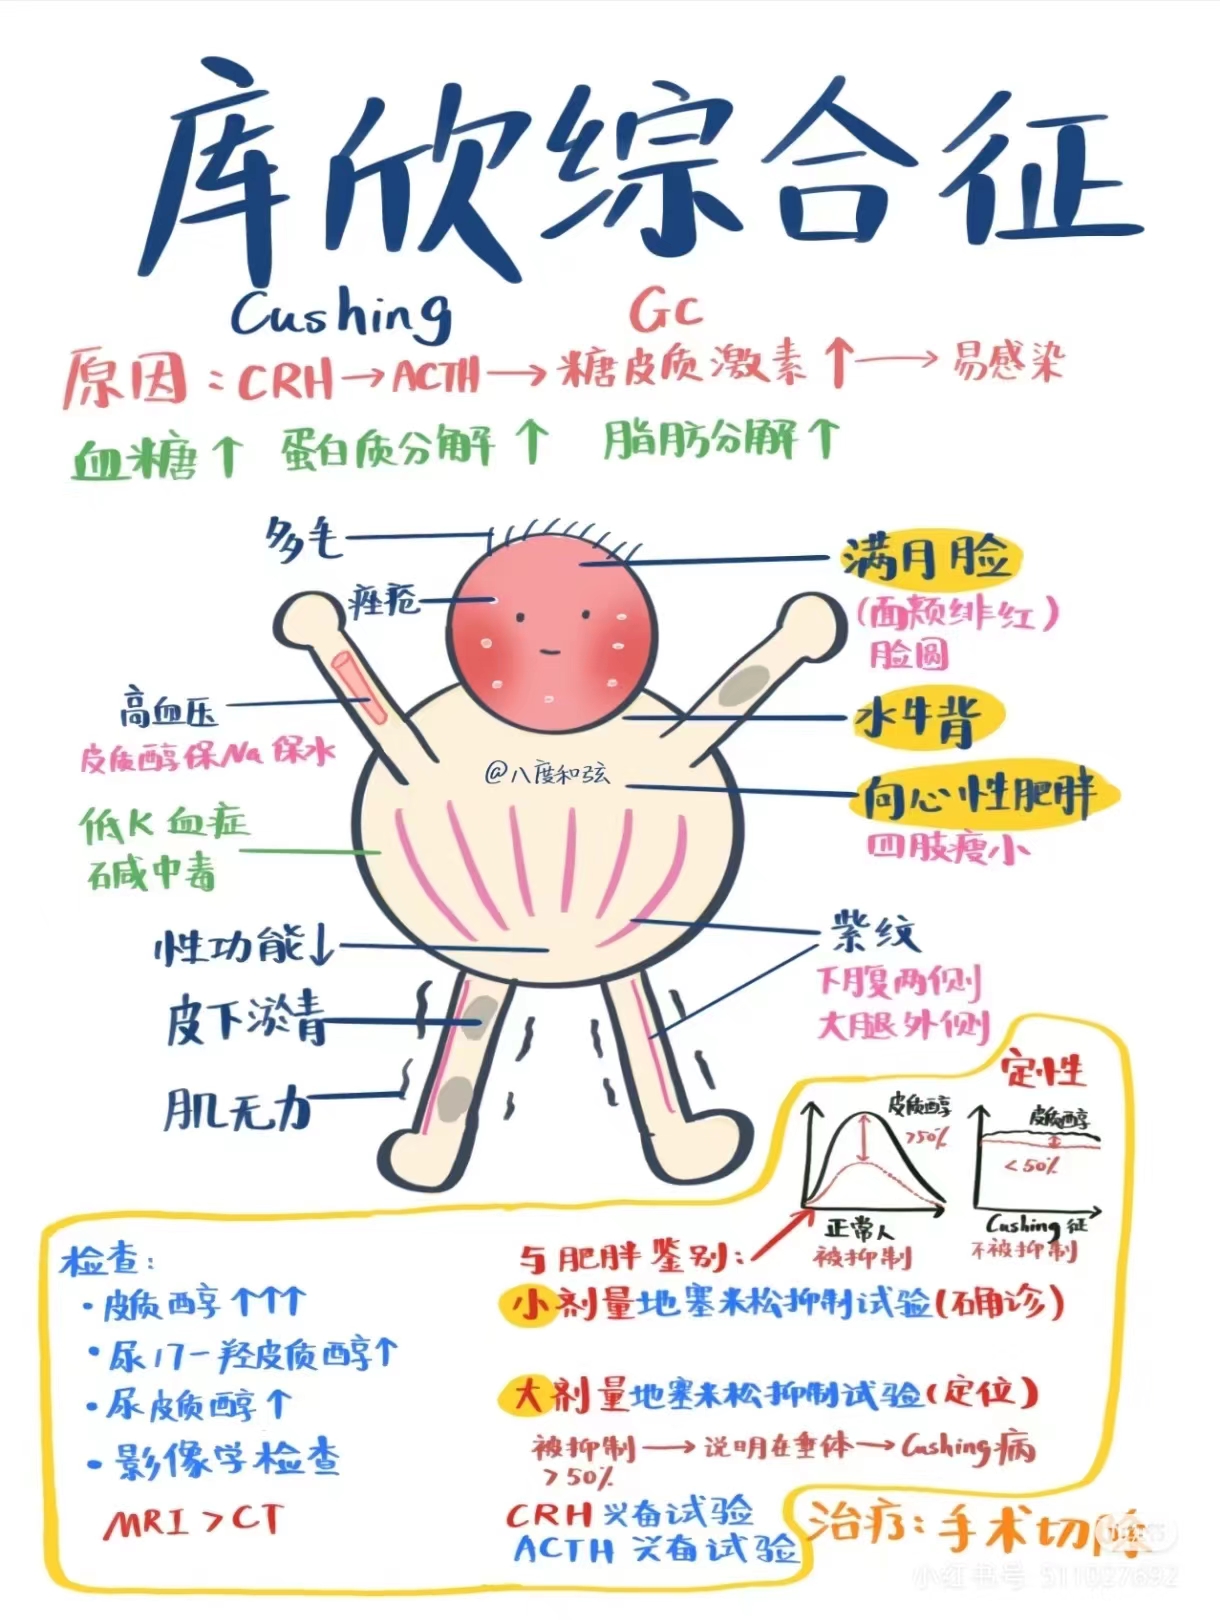 库欣综合征
Cushing
Gc
原因：CRH→ACTH→糖皮质激素↑→易感染
血糖↑ 蛋白质分解↑ 脂肪分解↑
多毛
痤疮
满月脸
(面颊绯红)
脸圆
高血压
皮质醇保Na保水
水牛背
@八度和弦
向心性肥胖
四肢瘦小
低K血症
碱中毒
性功能↓
紫纹
下腹两侧
大腿外侧
皮下淤青
肌无力
定性
皮质醇
>50%
正常人
被抑制
皮质醇
<50%
Cushing征
不被抑制
检查：
·皮质醇↑↑↑
·尿17-羟皮质醇↑
·尿皮质醇↑
·影像学检查
MRI>CT
与肥胖鉴别：
小剂量地塞米松抑制试验(确诊)
大剂量地塞米松抑制试验(定位)
被抑制→说明在垂体→Cushing病
>50%
CRH兴奋试验
ACTH兴奋试验
治疗：手术切除
小红书
小红书号 511027692